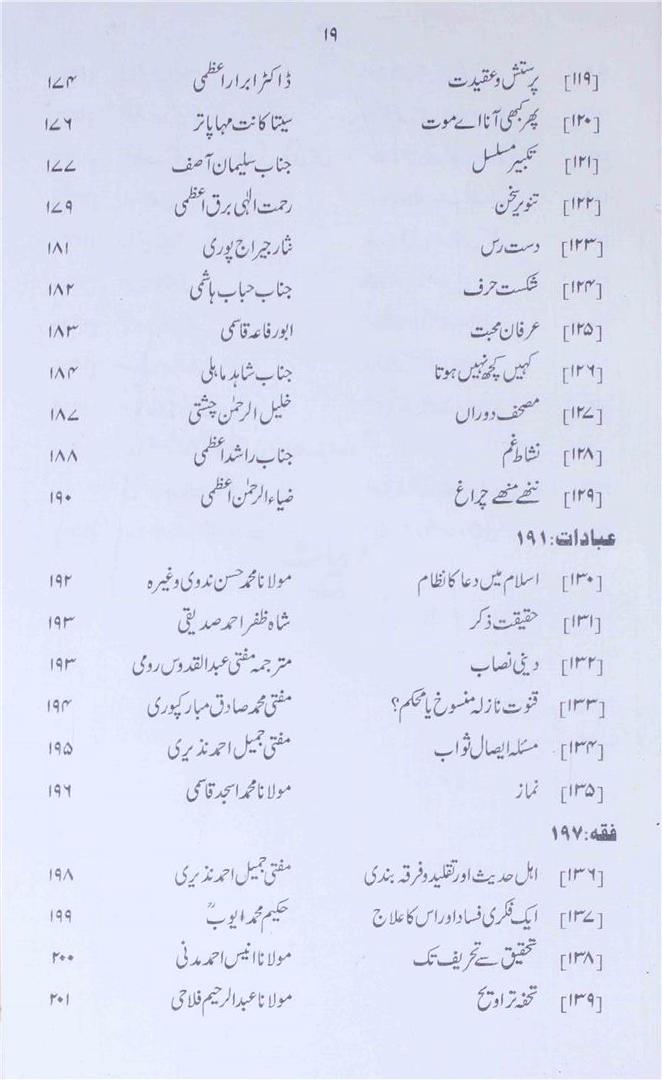 ۱۹
[۱۱۹] پرستش و عقیدت ڈاکٹر ابرار اعظمی ۱۷۴
[۱۲۰] پھر کبھی آنا اے موت سیتا کانت مہاپاتر ۱۷۶
[۱۲۱] تکبیر مسلسل جناب سلیمان آصف ۱۷۷
[۱۲۲] تنویر سخن رحمت الٰہی برق اعظمی ۱۷۹
[۱۲۳] دست رس نثار جیراج پوری ۱۸۱
[۱۲۴] شکست حرف جناب حباب ہاشمی ۱۸۲
[۱۲۵] عرفان محبت ابورفاعہ قاسمی ۱۸۳
[۱۲۶] کہیں کچھ نہیں ہوتا جناب شاہد ماہلی ۱۸۴
[۱۲۷] مصحف دوراں خلیل الرحمٰن چشتی ۱۸۷
[۱۲۸] نشاط غم جناب راشد اعظمی ۱۸۸
[۱۲۹] ننھے منھے چراغ ضیاء الرحمٰن اعظمی ۱۹۰
عبادات: ۱۹۱
[۱۳۰] اسلام میں دعا کا نظام مولانا محمد حسن ندوی وغیرہ ۱۹۲
[۱۳۱] حقیقت ذکر شاہ ظفر احمد صدیقی ۱۹۳
[۱۳۲] دینی نصاب مترجمہ مفتی عبدالقدوس رومی ۱۹۳
[۱۳۳] قنوت نازلہ منسوخ یا محکم؟ مفتی محمد صادق مبارکپوری ۱۹۴
[۱۳۴] مسئلہ ایصال ثواب مفتی جمیل احمد نذیری ۱۹۵
[۱۳۵] نماز مولانا محمد اسجد قاسمی ۱۹۶
فقہ: ۱۹۷
[۱۳۶] اہل حدیث اور تقلید و فرقہ بندی مفتی جمیل احمد نذیری ۱۹۸
[۱۳۷] ایک فکری فساد اور اس کا علاج حکیم محمد ایوبؒ ۱۹۹
[۱۳۸] تحقیق سے تحریف تک مولانا انیس احمد مدنی ۲۰۰
[۱۳۹] تحفہ تراویح مولانا عبدالرحیم فلاحی ۲۰۱